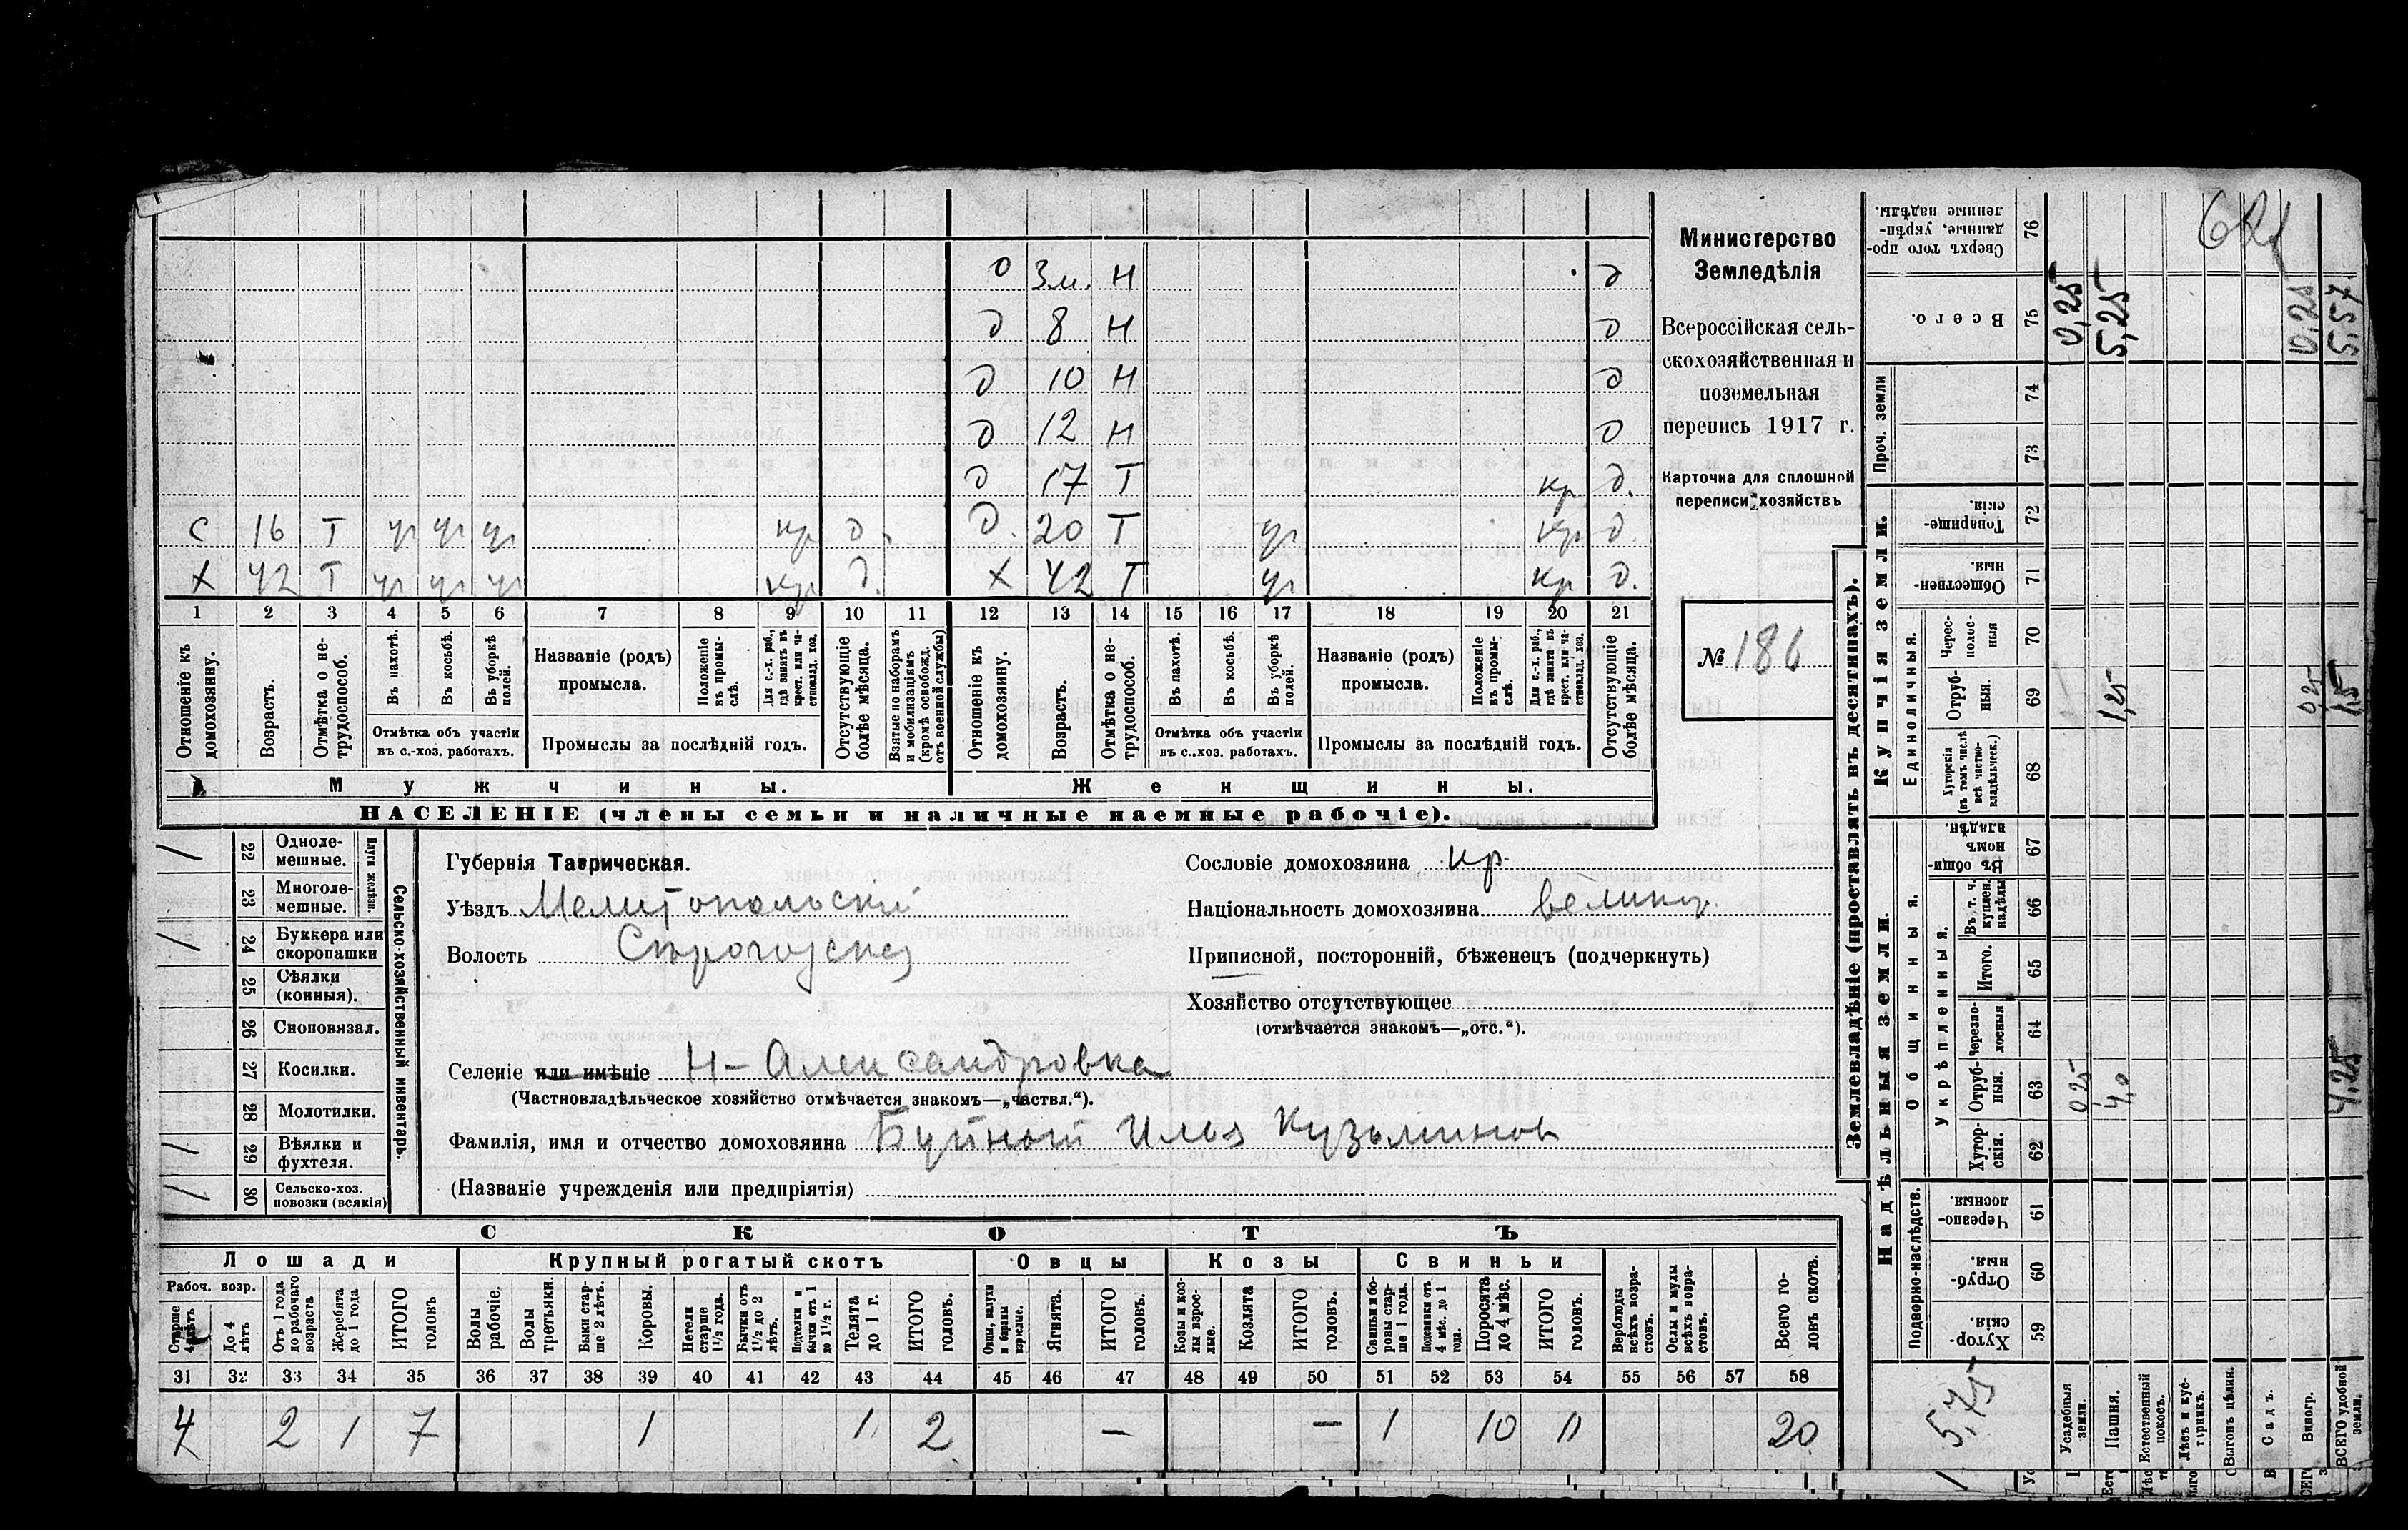 о 3 м. Н д
д 8 Н д
д 10 Н д
д 12 Н д
д 17 Т кр д.
с 16 Т уч уч уч кр д. д. 20 Т уч кр д.
х 42 Т уч уч уч кр д. х 42 Т уч кр д.
1 2 3 4 5 6 7 8 9 10 11 12 13 14 15 16 17 18 19 20 21
Отношеніе къ домохозяину.
Возрастъ.
Отмѣтка о нетрудоспособ.
Въ пахотѣ.
Въ косьбѣ.
Въ уборкѣ полей.
Отмѣтка объ участіи
въ с.-хоз. работахъ.
Названіе (родъ)
промысла.
Положеніе въ промыслѣ.
Для с.-х. раб., гдѣ занятъ въ крест. или частновлад. хоз.
Промыслы за послѣдній годъ.
Отсутствующіе болѣе мѣсяца.
Взятые по наборамъ и мобилизаціямъ (кромѣ освобожд. отъ военной службы)
Отношеніе къ домохозяину.
Возрастъ.
Отмѣтка о нетрудоспособ.
Въ пахотѣ.
Въ косьбѣ.
Въ уборкѣ полей.
Отмѣтка объ участіи
въ с..хоз. работахъ.
Названіе (родъ)
промысла.
Положеніе въ промыслѣ.
Для с.-х. раб., гдѣ занята въ крест. или частновлад. хоз.
Промыслы за послѣдній годъ.
Отсутствующіе болѣе мѣсяца.
Мужчины. Женщины.
НАСЕЛЕНІЕ (члены семьи и наличные наемные рабочіе).
Министерство
Земледѣлія
Всероссійская сель-
скохозяйственная и
поземельная
перепись 1917 г.
Карточка для сплошной
переписи хозяйствъ
№ 186
/ 22 Одноле-
мешные.
23 Многоле-
мешные.
Плуги желѣзн.
/ 24 Буккера или
скоропашки
25 Сѣялки
(конныя).
26 Сноповязал.
27 Косилки.
28 Молотилки.
/ 29 Вѣялки и
фухтеля.
/ 30 Сельско-хоз.
повозки (всякія)
Сельско-хозяйственный инвентарь.
Губернія Таврическая.
Уѣздъ Мелитопольскій
Волость
Сословіе домохозяина кр.
Національность домохозяина велик.
Приписной, посторонній, бѣженецъ (подчеркнуть)
Хозяйство отсутствующее
(отмѣчается знакомъ—„отс.“).
Селеніе или имѣніе Н-Александровка
(Частновладѣльческое хозяйство отмѣчается знакомъ—„частвл.“).
Фамилія, имя и отчество домохозяина Буйный Илья Кузьминов
(Названіе учрежденія или предпріятія)
СКОТЪ
Лошади Крупный рогатый скотъ Овцы Козы Свиньи
Рабоч. возр.
Старше 4 лѣтъ
До 4 лѣтъ
Отъ 1 года до рабочаго возраста
Жеребята до 1 года
ИТОГО головъ
Волы рабочіе.
Волы третьяки.
Быки старше 2 лѣтъ.
Коровы.
Нетели старше 1½ года.
Бычки отъ 1½ до 2 лѣтъ.
Подтелки и бычки отъ 1 до 1½ г.
Телята до 1 г.
ИТОГО головъ.
Овцы, валухи и бараны взрослые.
Ягнята.
ИТОГО головъ.
Козы и козлы взрослые.
Козлята
ИТОГО головъ.
Свиньи и боровы старше 1 года.
Подсвинки отъ 4 мѣс. до 1 года.
Поросята до 4 мѣс.
ИТОГО головъ.
Верблюды всѣхъ возрастовъ.
Ослы и мулы всѣхъ возрастовъ.
Всего головъ скота.
31 32 33 34 35 36 37 38 39 40 41 42 43 44 45 46 47 48 49 50 51 52 53 54 55 56 57 58
4 2 1 7 1 1 2 — — 1 10 11 20
Землевладѣніе (проставлять въ десятинахъ).
Надѣльныя земли. Купчія земли. Проч. земли
Подворно-наслѣдств.
Общинныя.
Укрѣпленныя.
Единоличныя.
59 Хуторскія.
60 Отрубныя.
61 Черезполосныя.
62 Хуторскія.
63 Отрубныя.
64 Черезполосныя
65 Итого.
66 Въ т. ч. куплен. надѣлы
67 Въ общинномъ владѣн.
68 Хуторскія (въ томъ числѣ всѣ частновладѣльческ.)
69 Отрубныя.
70 Чересполосныя
71 Общественныя.
72 Товарищескія.
73
74
75 Всего.
76 Сверхъ того проданные, укрѣпленные надѣлы.
Усадебныя земли. 0,25 0,25
Пашня. 4,0 1,25 5,25
Естественный покосъ.
Лѣсъ и кустарникъ.
Выгонъ цѣлин.
Садъ.
Виногр. 0,25 0,25
ВСЕГО удобной земли. 4,25 1,5 5,57
5,75